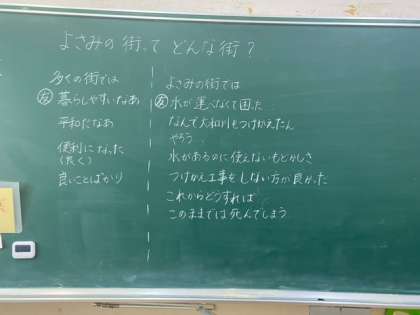 よさみの街って どんな街？
多くの街では
友 暮らしやすいなあ
平和だなあ
便利になった
(黒く)
良いことばかり
よさみの街では
友 水が運べなくて困った…
なんで大和川もつけかえたん
やろう…
水があるのに使えないもどかしさ
つけかえ工事をしない方が良かった
これからどうすれば
このままでは死んでしまう